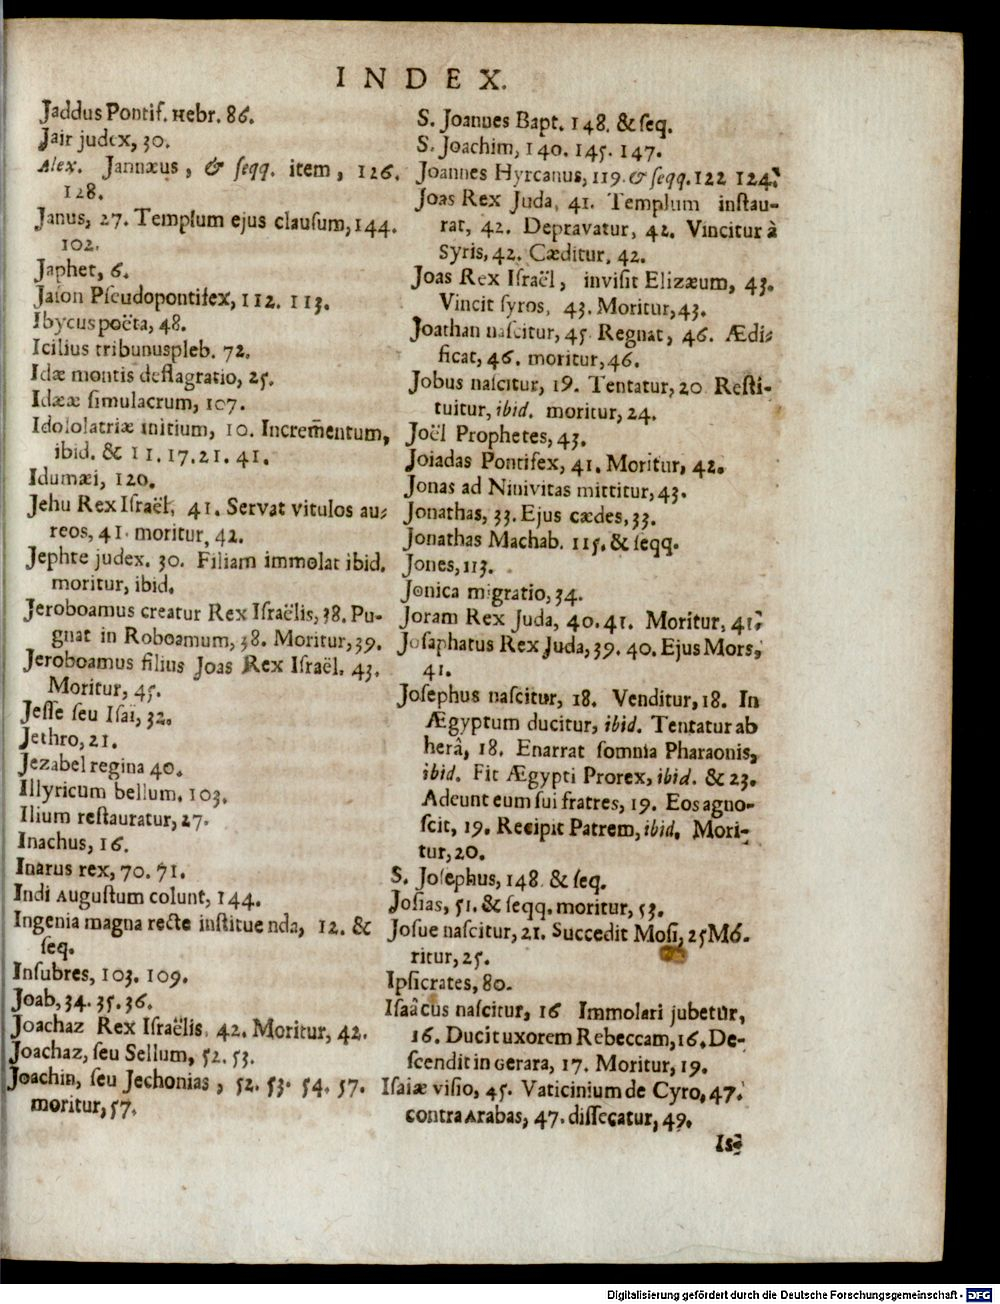 INDEX.
Jaddus Pontif. Hebr. 86.
Jair judex, 30.
Alex. Jannæus, & seqq. item, 126.
128.
Janus, 27. Templum ejus clausum, 144.
102.
Japhet, 6.
Jason Pseudopontifex, 112. 113.
Ibycus poëta, 48.
Icilius tribunus pleb. 72.
Idæ montis deflagratio, 25.
Idææ simulacrum, 107.
Idololatriæ initium, 10. Increm̄entum,
ibid. & 11. 17. 21. 41.
Idumæi, 120.
Jehu Rex Israël, 41. Servat vitulos au-
reos, 41. moritur, 42.
Jephte judex. 30. Filiam immolat ibid.
moritur, ibid.
Jeroboamus creatur Rex Israëlis, 38. Pu-
gnat in Roboamum, 38. Moritur, 39.
Jeroboamus filius Joas Rex Israël. 43.
Moritur, 45.
Jesse seu Isai, 32.
Jethro, 21.
Jezabel regina 40.
Illyricum bellum. 103.
Ilium restauratur, 27.
Inachus, 16.
Inarus rex, 70. 71.
Indi Augustum colunt, 144.
Ingenia magna recte instituenda, 12. &
seq.
Insubres, 103. 109.
Joab, 34. 35. 36.
Joachaz Rex Israëlis, 42. Moritur, 42.
Joachaz, seu Sellum, 52. 53.
Joachin, seu Jechonias, 52. 53. 54. 57.
moritur, 57.
S. Joannes Bapt. 148. & seq.
S. Joachim, 140. 145. 147.
Joannes Hyrcanus, 119. & seqq. 122 124.
Joas Rex Juda, 41. Templum instau-
rat, 42. Depravatur, 42. Vincitur à
Syris, 42. Cæditur, 42.
Joas Rex Israël, invisit Elizæum, 43.
Vincit syros, 43. Moritur, 43.
Joathan nascitur, 45. Regnat, 46. Ædi-
ficat, 46. moritur, 46.
Jobus nascitur, 19. Tentatur, 20 Resti-
tuitur, ibid. moritur, 24.
Joël Prophetes, 43.
Joiadas Pontifex, 41. Moritur, 42.
Jonas ad Ninivitas mittitur, 43.
Jonathas, 33. Ejus cædes, 33.
Jonathas Machab. 115. & seqq.
Jones, 113.
Jonica migratio, 34.
Joram Rex Juda, 40. 41. Moritur, 41.
Josaphatus Rex Juda, 39. 40. Ejus Mors,
41.
Josephus nascitur, 18. Venditur, 18. In
Ægyptum ducitur, ibid. Tentatur ab
herâ, 18. Enarrat somnia Pharaonis,
ibid. Fit Ægypti Prorex, ibid. & 23.
Adeunt eum sui fratres, 19. Eos agno-
scit, 19. Recipit Patrem, ibid. Mori-
tur, 20.
S. Josephus, 148. & seq.
Josias, 51. & seqq. moritur, 53.
Josue nascitur, 21. Succedit Mosi, 25 Mo-
ritur, 25.
Ipsicrates, 80.
Isaâcus nascitur, 16 Immolari jubetur,
16. Ducit uxorem Rebeccam, 16. De-
scendit in Gerara, 17. Moritur, 19.
Isaiæ visio, 45. Vaticinium de Cyro, 47.
contra Arabas, 47. dissecatur, 49.
Is-
Digitalisierung gefördert durch die Deutsche Forschungsgemeinschaft - DFG